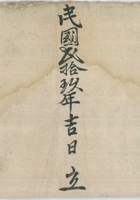 民國貳拾玖年吉日立